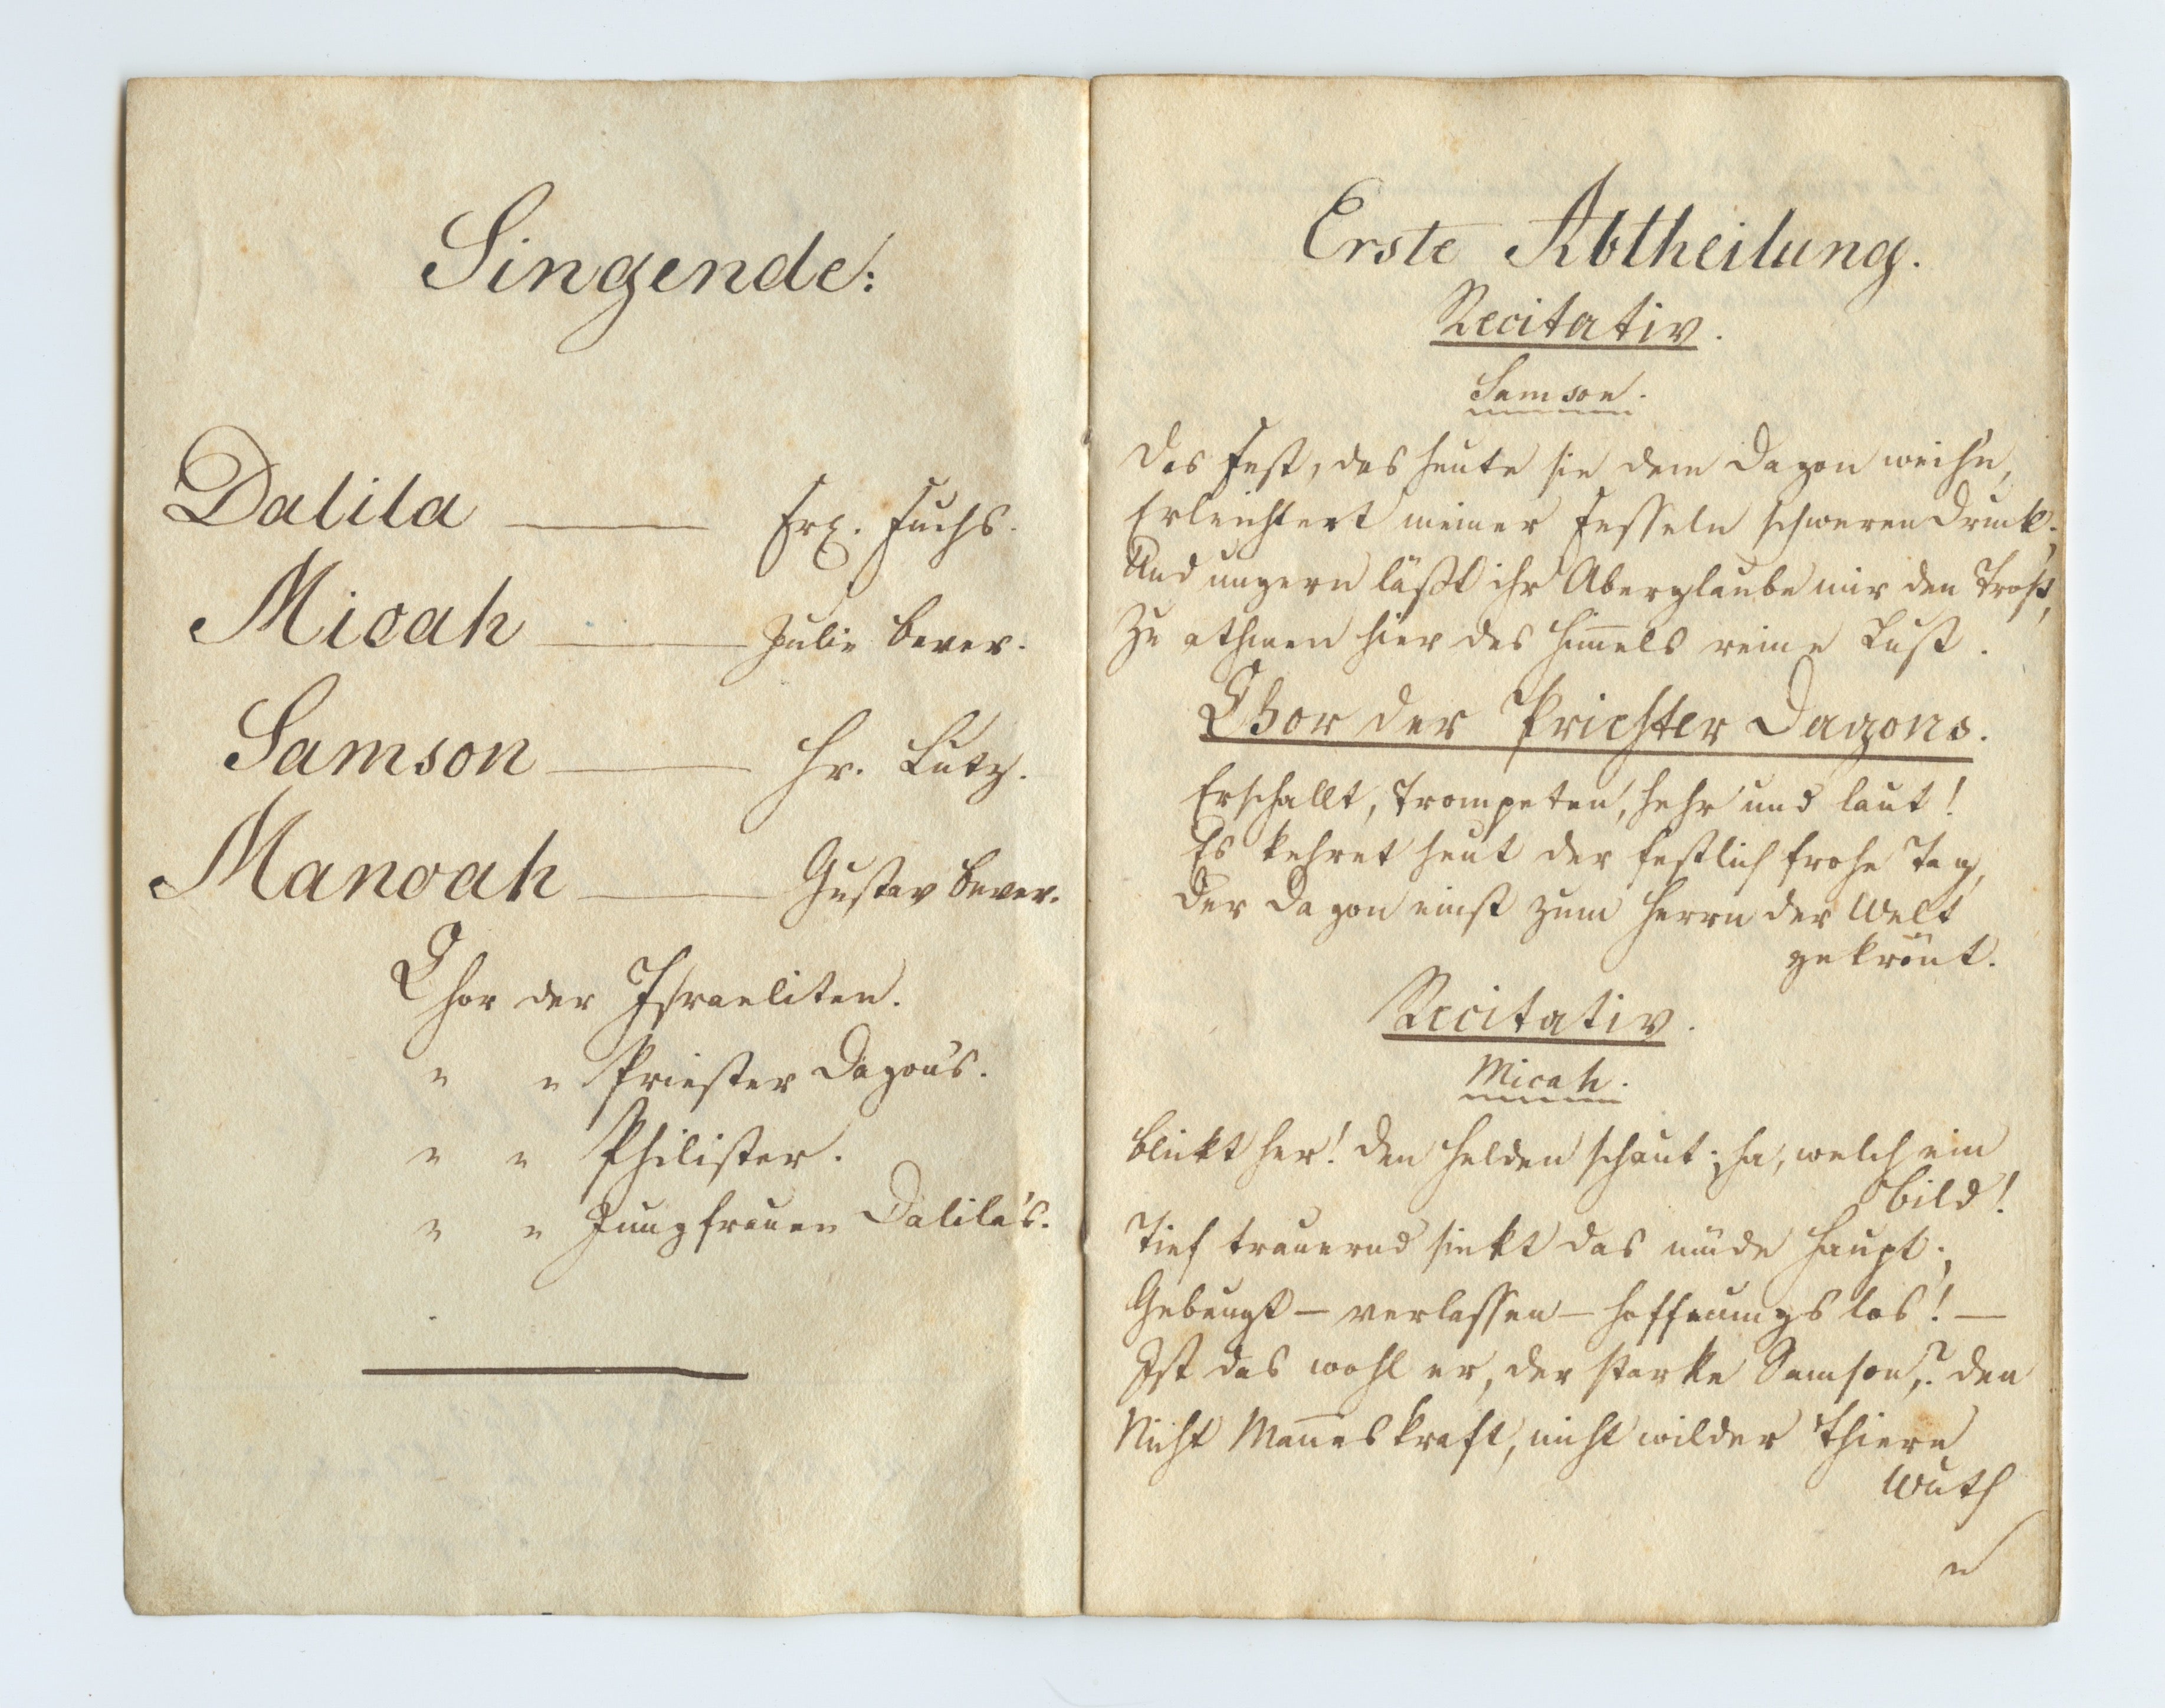 Singende:
Dalila — Frl. Fuchs.
Micah — Julie Beyer.
Samson — Hr. Lutz.
Manoah — Gustav Beyer.
Chor der Israeliten.
" " Priester Dagon's.
" " Philister.
" " Jungfrauen Dalila's.
Erste Abtheilung.
Recitativ.
Samson.
Das Fest, das heute sie dem Dagon weihn,
Erleichtert meiner Fesseln schweren Druck;
Und ungern läßt ihr Aberglaube mir den Trost,
Zu athmen hier des Himmels reine Luft.
Chor der Priester Dagons.
Erschallt, Trompeten, hehr und laut!
Es kehret heut der festlich frohe Tag,
Der Dagon einst zum Herrn der Welt
gekrönt.
Recitativ.
Micah.
Blickt her! den Helden schaut; ha, welch ein
Bild!
Tief trauernd sinkt das müde Haupt;
Gebeugt — verlassen — hoffnungslos! —
Ist das wohl er, der starke Samson,? den
Nicht Manneskraft, nicht wilder Thiere
Wuth